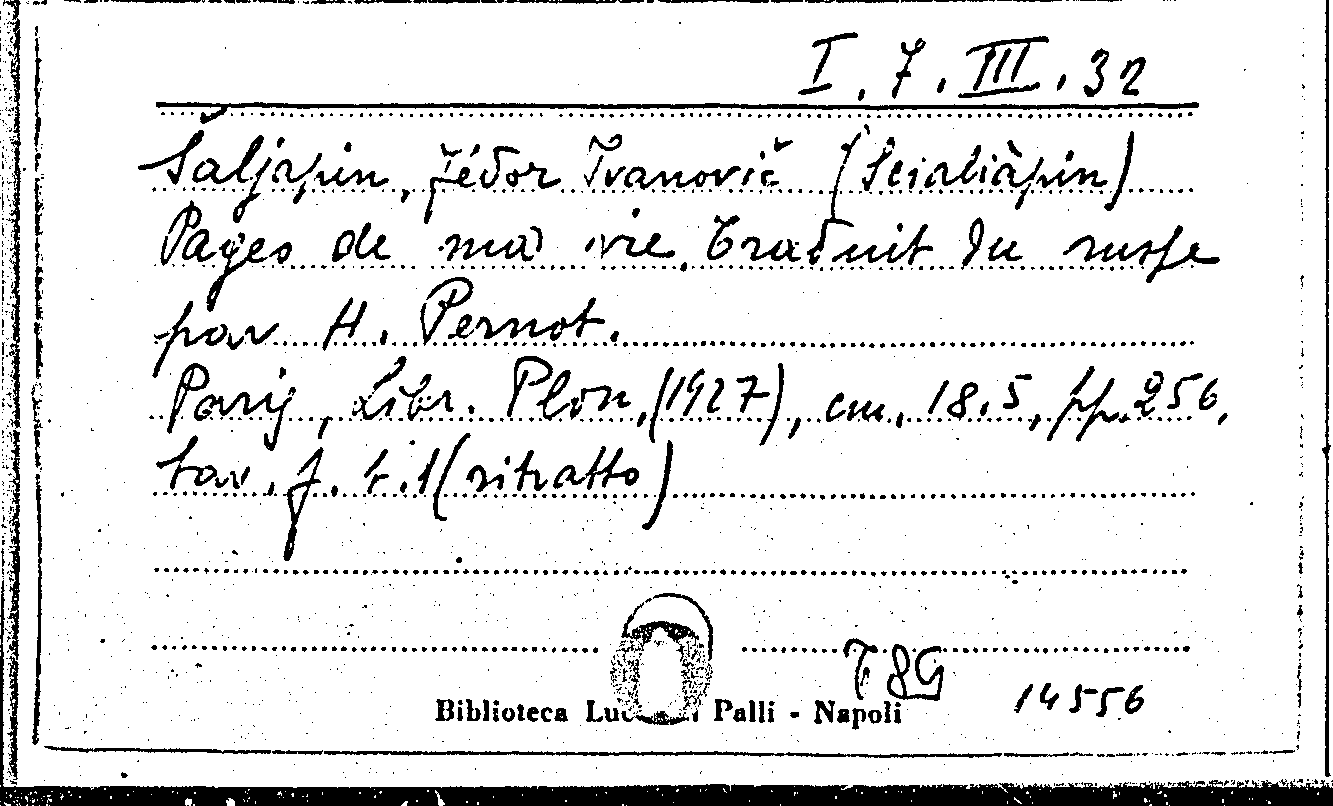 I. 7. III. 32
Šaljapin, Fëdor Ivanovič (Scialiàpin)
Pages de ma vie. Traduit du russe
par H. Pernot.
Paris, Libr. Plon, (1927), cm. 18.5, pp. 256,
tav. f. t. 1 (ritratto)
14556
Biblioteca Palli - Napoli